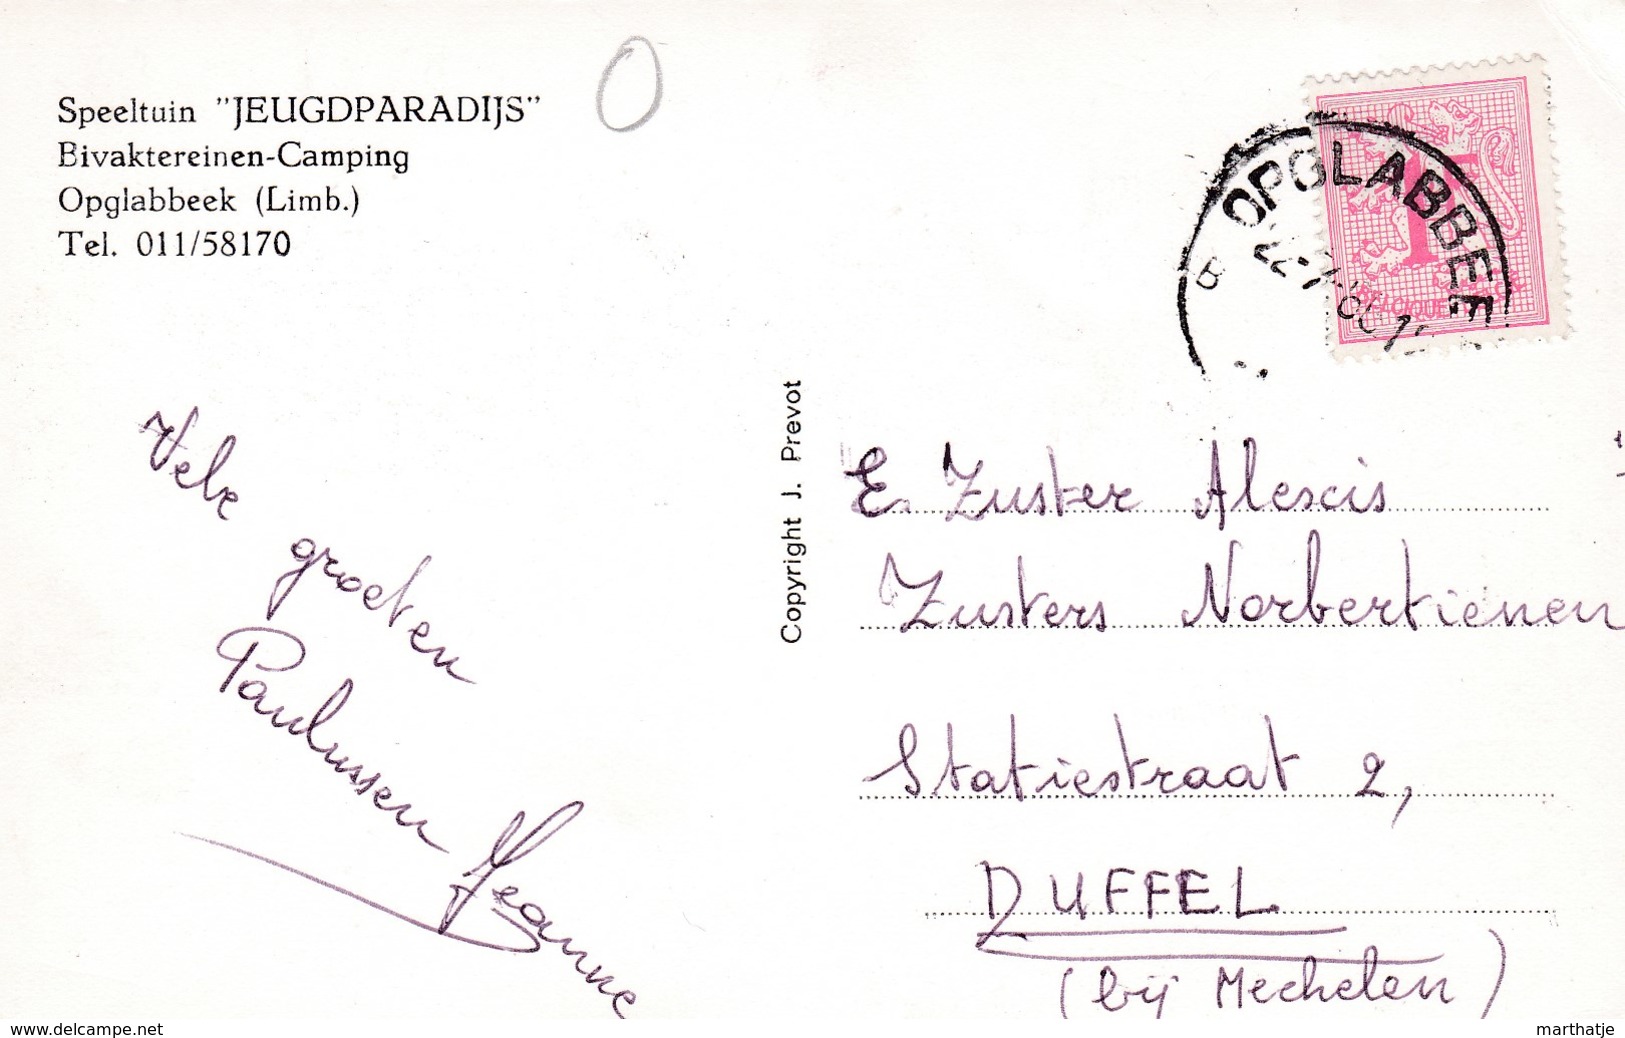 Speeltuin "JEUGDPARADIJS"
Bivaktereinen-Camping
Opglabbeek (Limb.)
Tel. 011/58170
OPGLABBEE
B
22-7
1F
BELGIQUE
Vele
groeten
Paulussen Jeanne
Copyright J. Prevot
E. Zuster Alescis
Zusters Norbertienen
Statiestraat 2,
DUFFEL
(bij Mechelen)
www.delcampe.net
marthatje